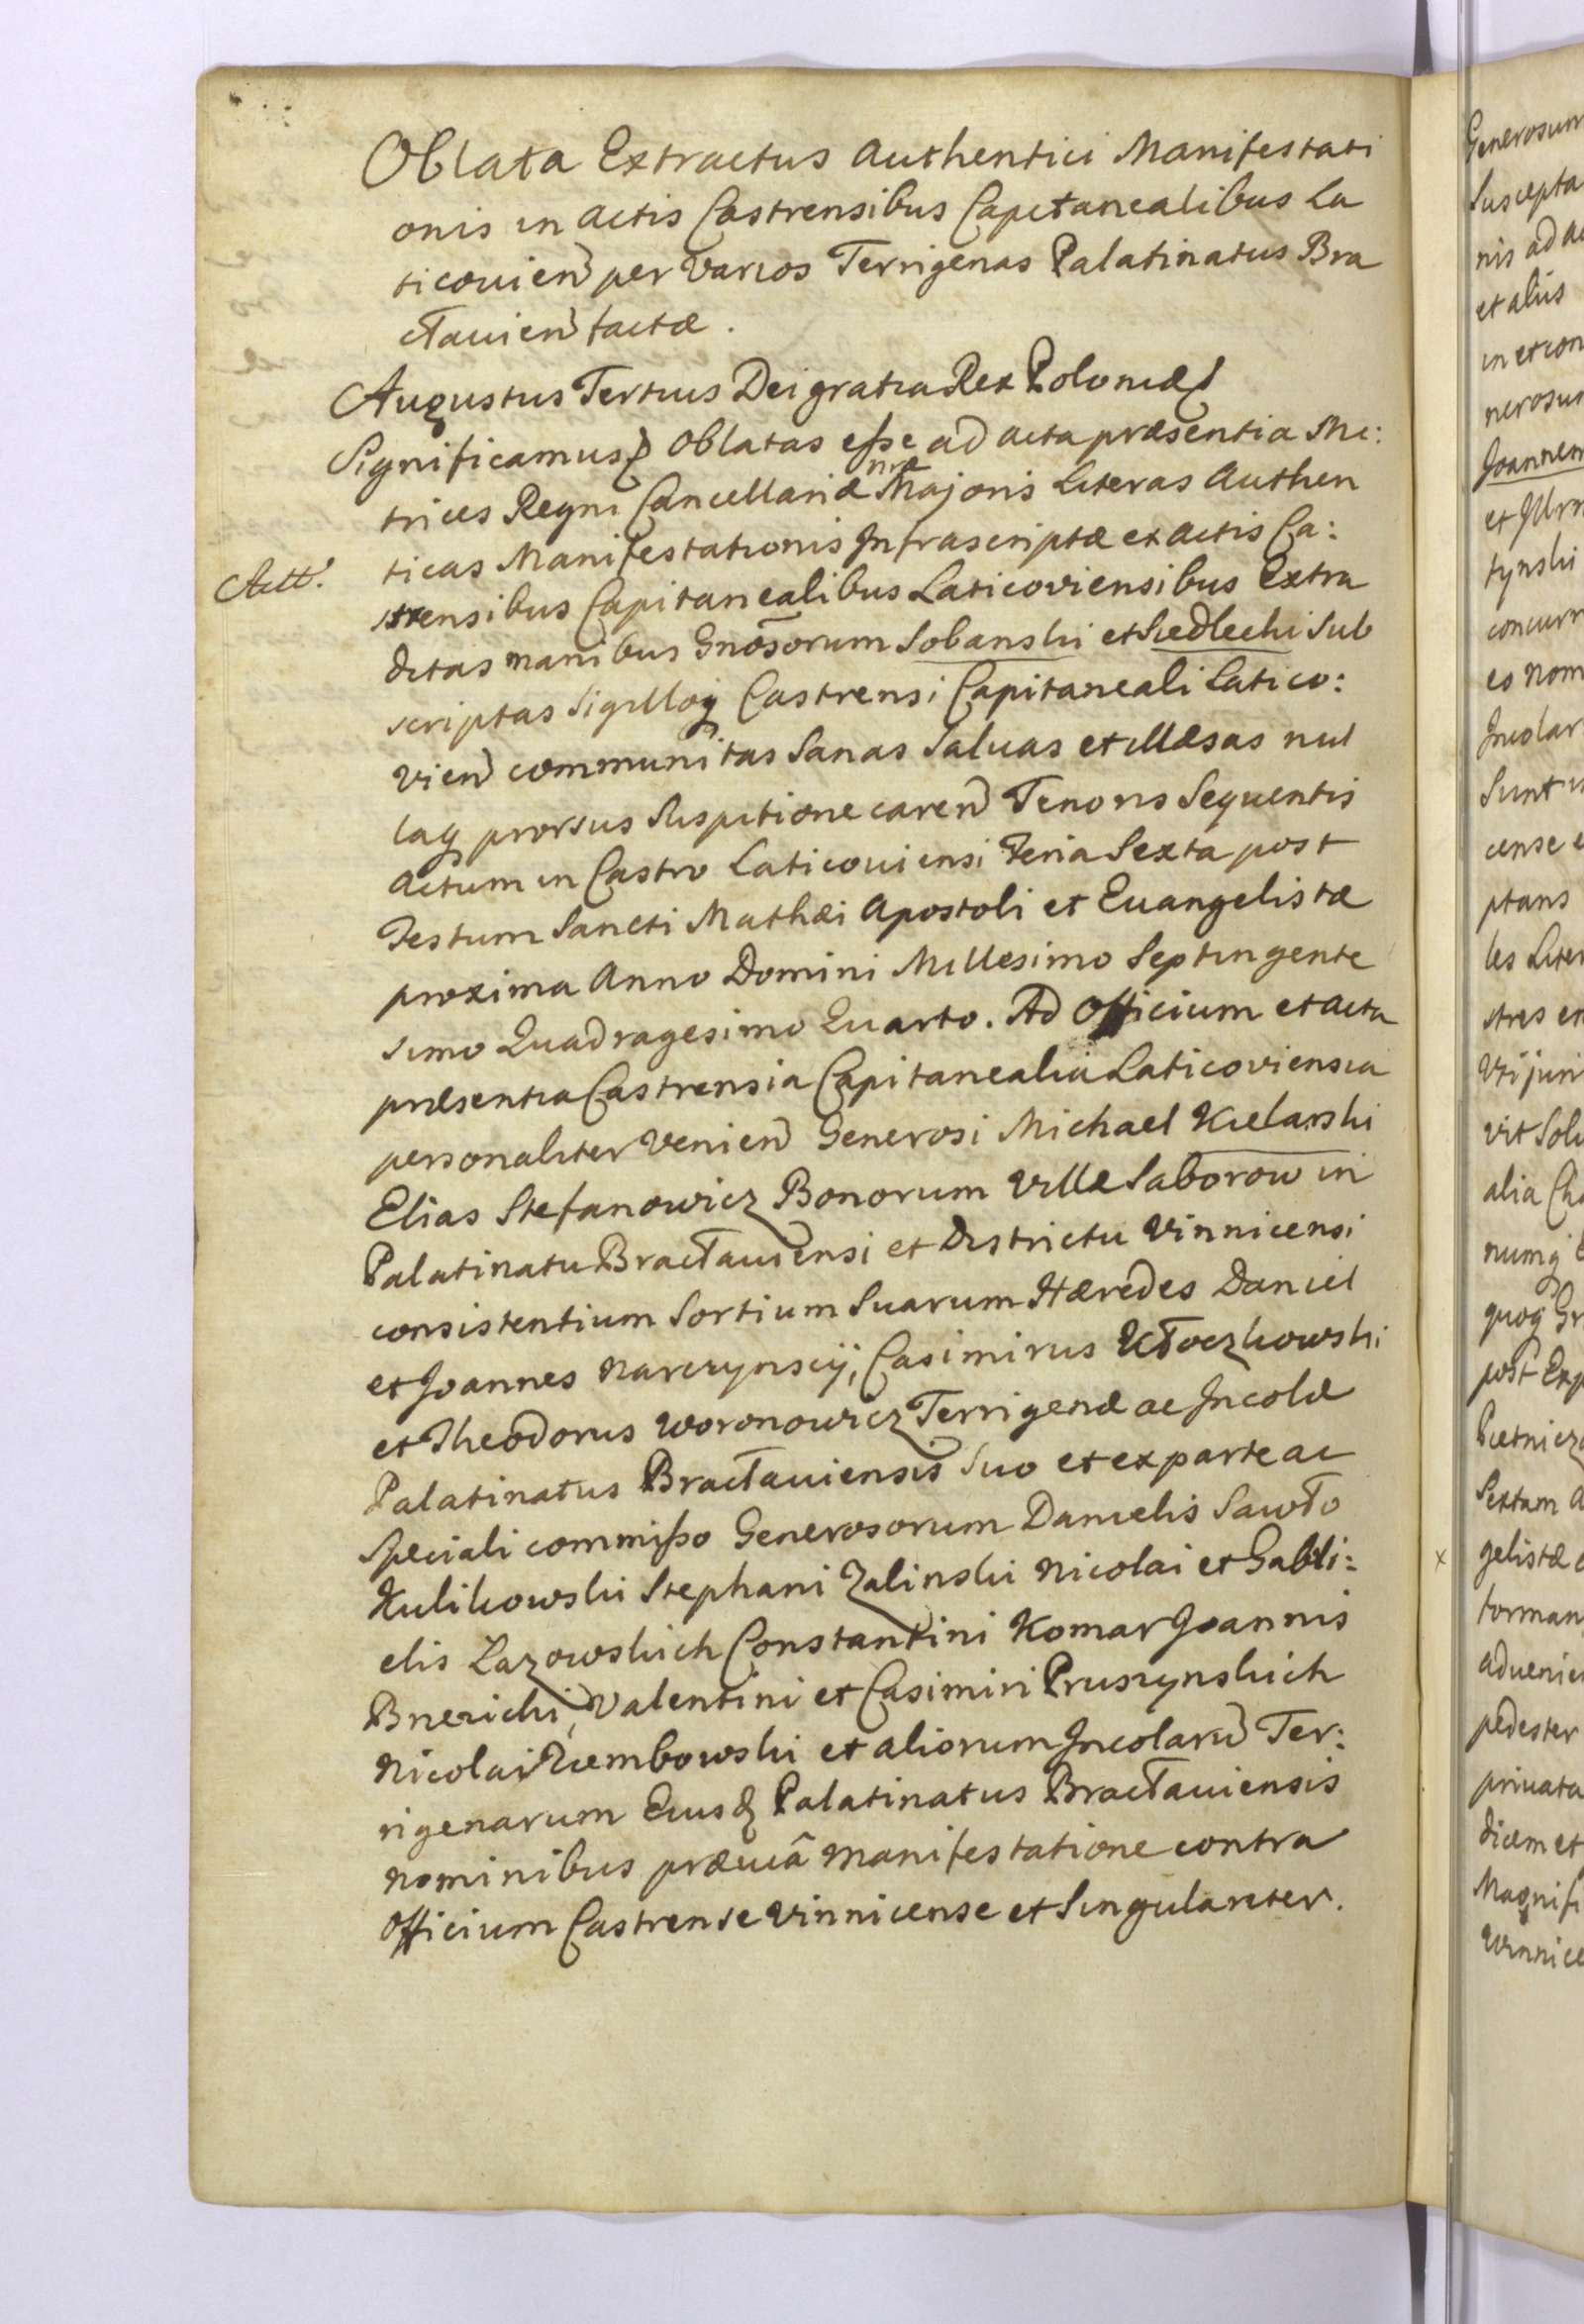 Oblata Extractus Authentici Manifestati
onis in Actis Castrensibus Capitanealibus La
ticovien per Varios Terrigenas Palatinatus Bra
cłauien factæ.
Augustus Tertius Dei gratia Rex Poloniæ
Significamus Oblatas esse ad acta præsentia Me:
trices Regni Cancellariæ nræ Majoris Literas Authen
ticas Manifestationis Infrascriptæ ex actis Ca:
Actt.
strensibus Capitanealibus Laticoviensibus Extra
ditas manibus Gnosorum Sobanski et Siedlecki Sub
scriptas Sigilloq Castrensi Capitaneali Latico:
vien communitas Sanas Saluas et illæsas nul
laq prorsus Suspitione caren Tenoris Sequentis
Actum in Castro Laticouiensi Feria Sexta post
Festum Sancti Mathæi Apostoli et Euangelistæ
proxima Anno Domini Millesimo Septingente
simo Quadragesimo Quarto. Ad Officium et acta
præsentia Castrensia Capitanealia Laticoviensia
personaliter Venien Generosi Michael Kielarski
Elias Stefanowicz Bonorum Villæ Saborow in
Palatinatu Bracłauiensi et Districtu Vinnicensi
consistentium Sortium Suarum Hæredes Daniel
et Joannes Narczynscÿ, Casimirus Kłoczkowski
et Theodorus Woronowicz Terrigenæ ac Incolæ
Palatinatus Bracłauiensis Suo et ex parte ac
Speciali commisso Generosorum Danielis Sawło
Kulikowski Stephani Zalinski Nicolai et Gabri:
elis Lazowskich Constantini Komar Joannis
Bnerichi, Valentini et Casimiri Pruszynskich
Nicolai Ziembowski et aliorum Incolaru Ter:
rigenarum Eiusd Palatinatus Bracłauiensis
nominibus præuiâ manifestatione contra
Officium Castrense Vinnicense et Singulariter.
Generosum
Suscepta
nis ad ac
et aliis
in et con
nerosus
Joannem
tynski
concurr
eo nom
Incolar
Sunt
cense e
ptans
les Liter
stres
Vti juri
vit Solu
alia
numq
quoq Gr
post Exp
Pietnicz
Sextam
x gelistæ
forman
aduenie
pedester
priuata
dicem et
Magnifi
Winnice